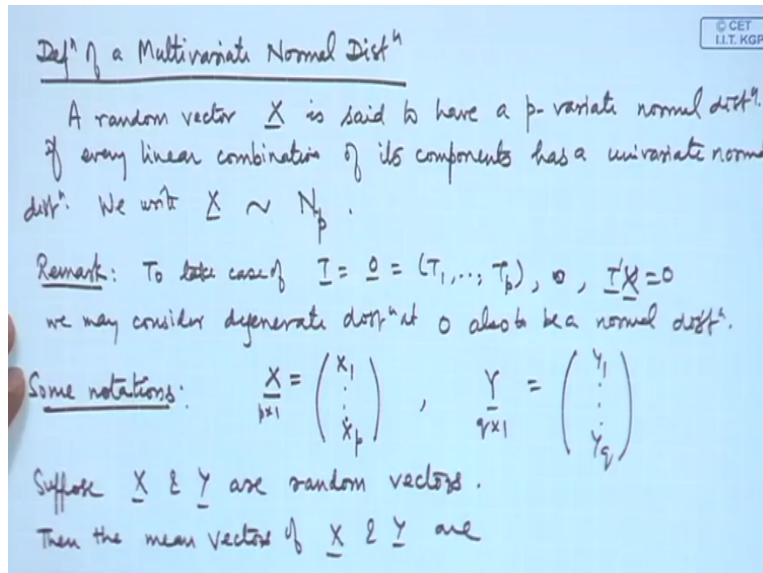 © CET
I.I.T. KGP
Defⁿ of a Multivariate Normal Distⁿ
A random vector X is said to have a p-variate normal distⁿ.
if every linear combination of its components has a univariate norma
distⁿ. We write X ~ N_p .
Remark: To take case of T = 0 = (T₁, .., T_p), 0, T'X = 0
we may consider degenerate distⁿ at 0 also to be a normal distⁿ.
Some notations: X p×1 = ( X₁ . . X_p ) , Y q×1 = ( Y₁ . . . Y_q )
Suppose X & Y are random vectors.
Then the mean vectors of X & Y are